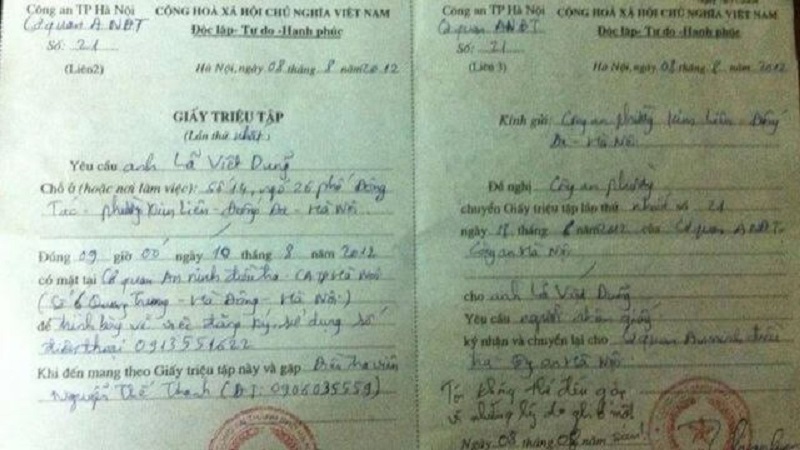 Công an TP Hà Nội
Cơ quan ANĐT
Số: 21
(Liên2)
CỘNG HOÀ XÃ HỘI CHỦ NGHĨA VIỆT NAM
Độc lập- Tự do -Hạnh phúc
Hà Nội, ngày 08 tháng 8 năm 2012
GIẤY TRIỆU TẬP
(Lần thứ nhất)
Yêu cầu anh Lã Việt Dũng
Chỗ ở (hoặc nơi làm việc): Số 14, ngõ 26 phố Đông
Tác - phường Kim Liên - Đống Đa - Hà Nội
Đúng 09 giờ 00 ngày 10 tháng 8 năm 2012
có mặt tại Cơ quan An ninh điều tra - CA TP Hà Nội
(Số 6 Quang Trung - Hà Đông - Hà Nội)
để trình bày về việc đăng ký, sử dụng số
điện thoại 0913551622
Khi đến mang theo Giấy triệu tập này và gặp Điều tra viên
Nguyễn Thế Thanh (ĐT: 0906035559)
Công an TP Hà Nội
Cơ quan ANĐT
Số: 21
(Liên 3)
CỘNG HOÀ XÃ HỘI CHỦ NGHĨA VIỆT NAM
Độc lập- Tự do -Hạnh phúc
Hà Nội, ngày 08 tháng 8 năm 2012
Kính gửi: Công an phường Kim Liên - Đống
Đa - Hà Nội
Đề nghị Công an phường
chuyển Giấy triệu tập lần thứ nhất số 21
ngày tháng 8 năm 2012 của Cơ quan ANĐT-
Công an Hà Nội
cho anh Lã Việt Dũng
Yêu cầu người nhận giấy
ký nhận và chuyển lại cho Cơ quan An ninh điều
tra - Hà Nội
Tôi không thể đến gặp
vì những lý do ghi ở
Ngày 08 tháng 08 năm